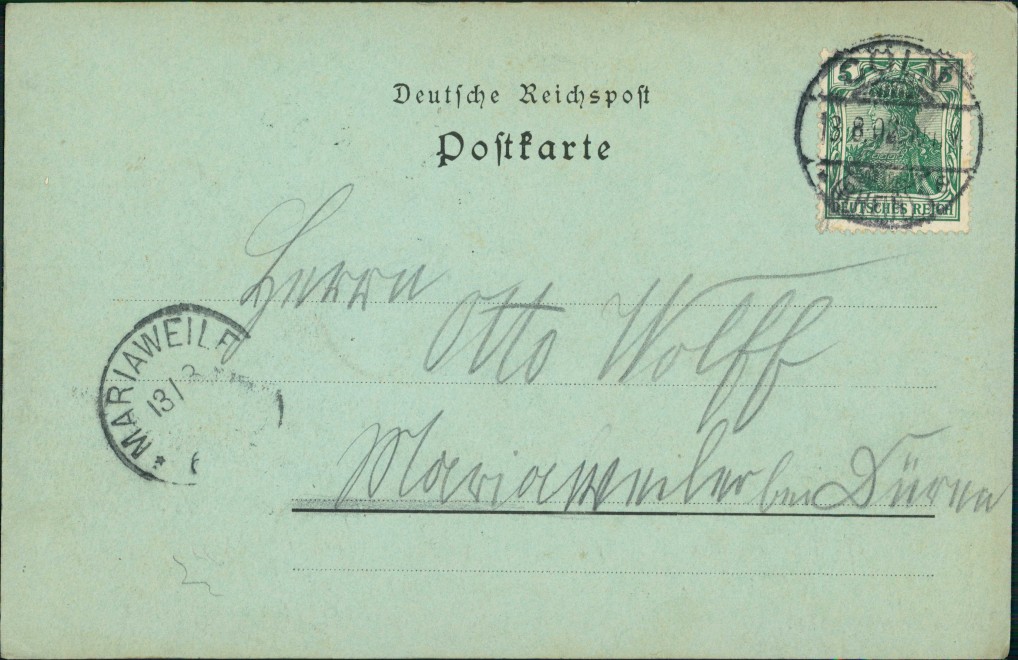 Deutsche Reichspost
Postkarte
5 5
CÖLN
13.8.02
DEUTSCHES REICH
Herrn
Otto Wolff
MARIAWEILE
13/8
Mariaweiler bei Düren